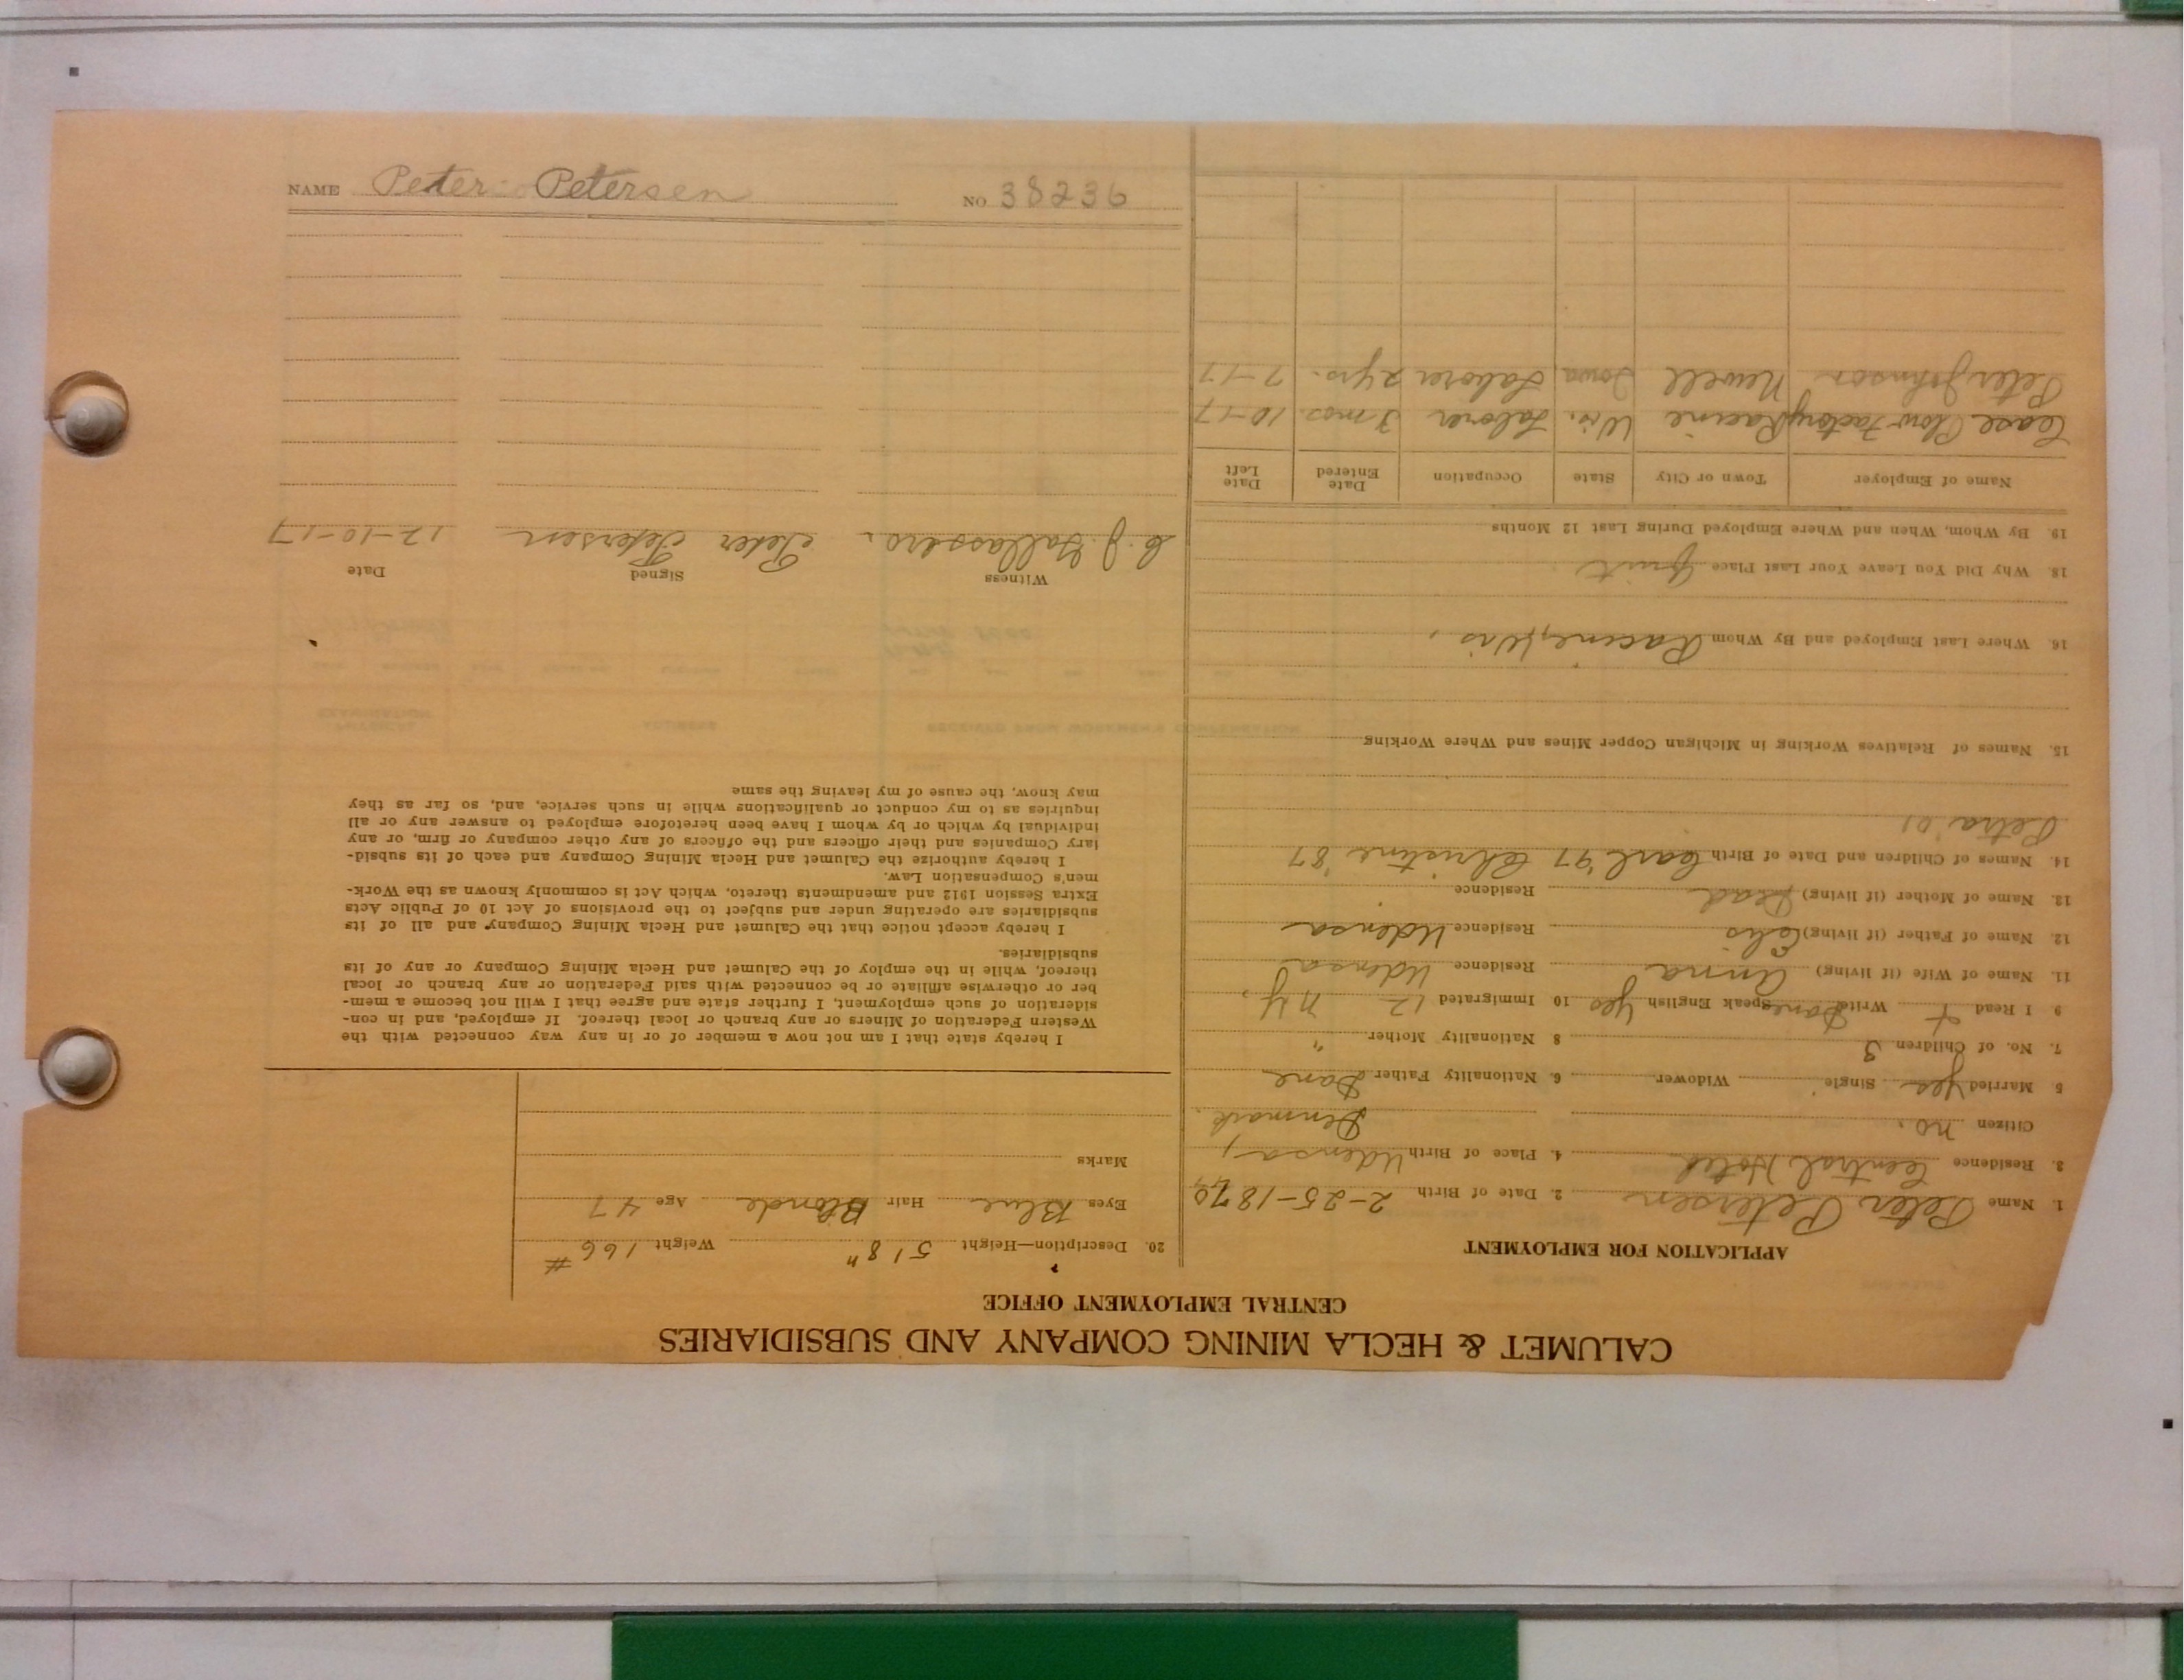 CALUMET & HECLA MINING COMPANY AND SUBSIDIARIES
CENTRAL EMPLOYMENT OFFICE
APPLICATION FOR EMPLOYMENT
1. Name Peter Petersen 2. Date of Birth 2-25-1870
3. Residence Central Hotel 4. Place of Birth Udensa,
Citizen no. Denmark.
5 Married Yes Single Widower 6. Nationality Father Dane
7. No. of Children 3 8 Nationality Mother "
9 I Read + Write Danes Speak English Yes 10 Immigrated 12 N.Y.
11. Name of Wife (if living) Anna Residence Udensa
12. Name of Father (if living) Residence Udensa
13. Name of Mother (if living) Dead Residence
14. Names of Children and Date of Birth Carl '97 Christine '87
Petra '01
15. Names of Relatives Working in Michigan Copper Mines and Where Working
16. Where Last Employed and By Whom Racine, Wis.
18. Why Did You Leave Your Last Place Quit
19. By Whom, When and Where Employed During Last 12 Months
Name of Employer Town or City State Occupation Date Entered Date Left
Case Plow Factory Racine Wis. Laborer 3 mos. 10-17
Peter Johnson Newell Iowa Laborer 2 yrs. 7-17
20. Description—Height 5' 8" Weight 166 #
Eyes Blue Hair Blonde Age 47
Marks
I hereby state that I am not now a member of or in any way connected with the
Western Federation of Miners or any branch or local thereof. If employed, and in con-
sideration of such employment, I further state and agree that I will not become a mem-
ber or otherwise affiliate or be connected with said Federation or any branch or local
thereof, while in the employ of the Calumet and Hecla Mining Company or any of its
subsidiaries.
I hereby accept notice that the Calumet and Hecla Mining Company and all of its
subsidiaries are operating under and subject to the provisions of Act 10 of Public Acts
Extra Session 1912 and amendments thereto, which Act is commonly known as the Work-
men's Compensation Law.
I hereby authorize the Calumet and Hecla Mining Company and each of its subsid-
iary Companies and their officers and the officers of any other company or firm, or any
individual by which or by whom I have been heretofore employed to answer any or all
inquiries as to my conduct or qualifications while in such service, and, so far as they
may know, the cause of my leaving the same
Witness Signed Date
C. J. Gallassero. Peter Petersen 12-10-17
NAME Peter Petersen NO 38236